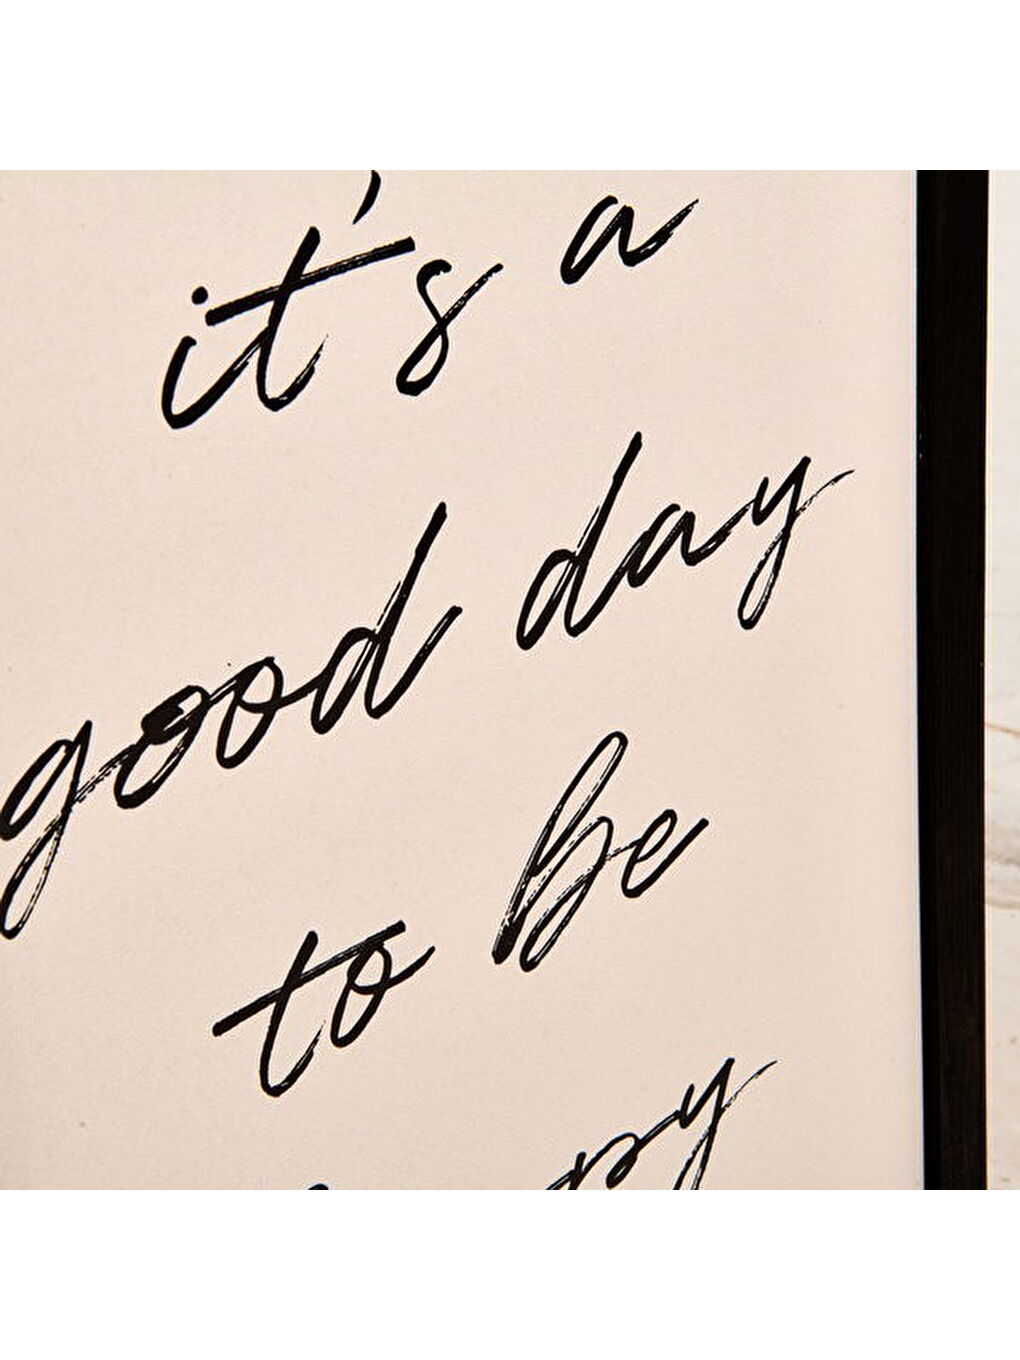 it's a
good day
to be